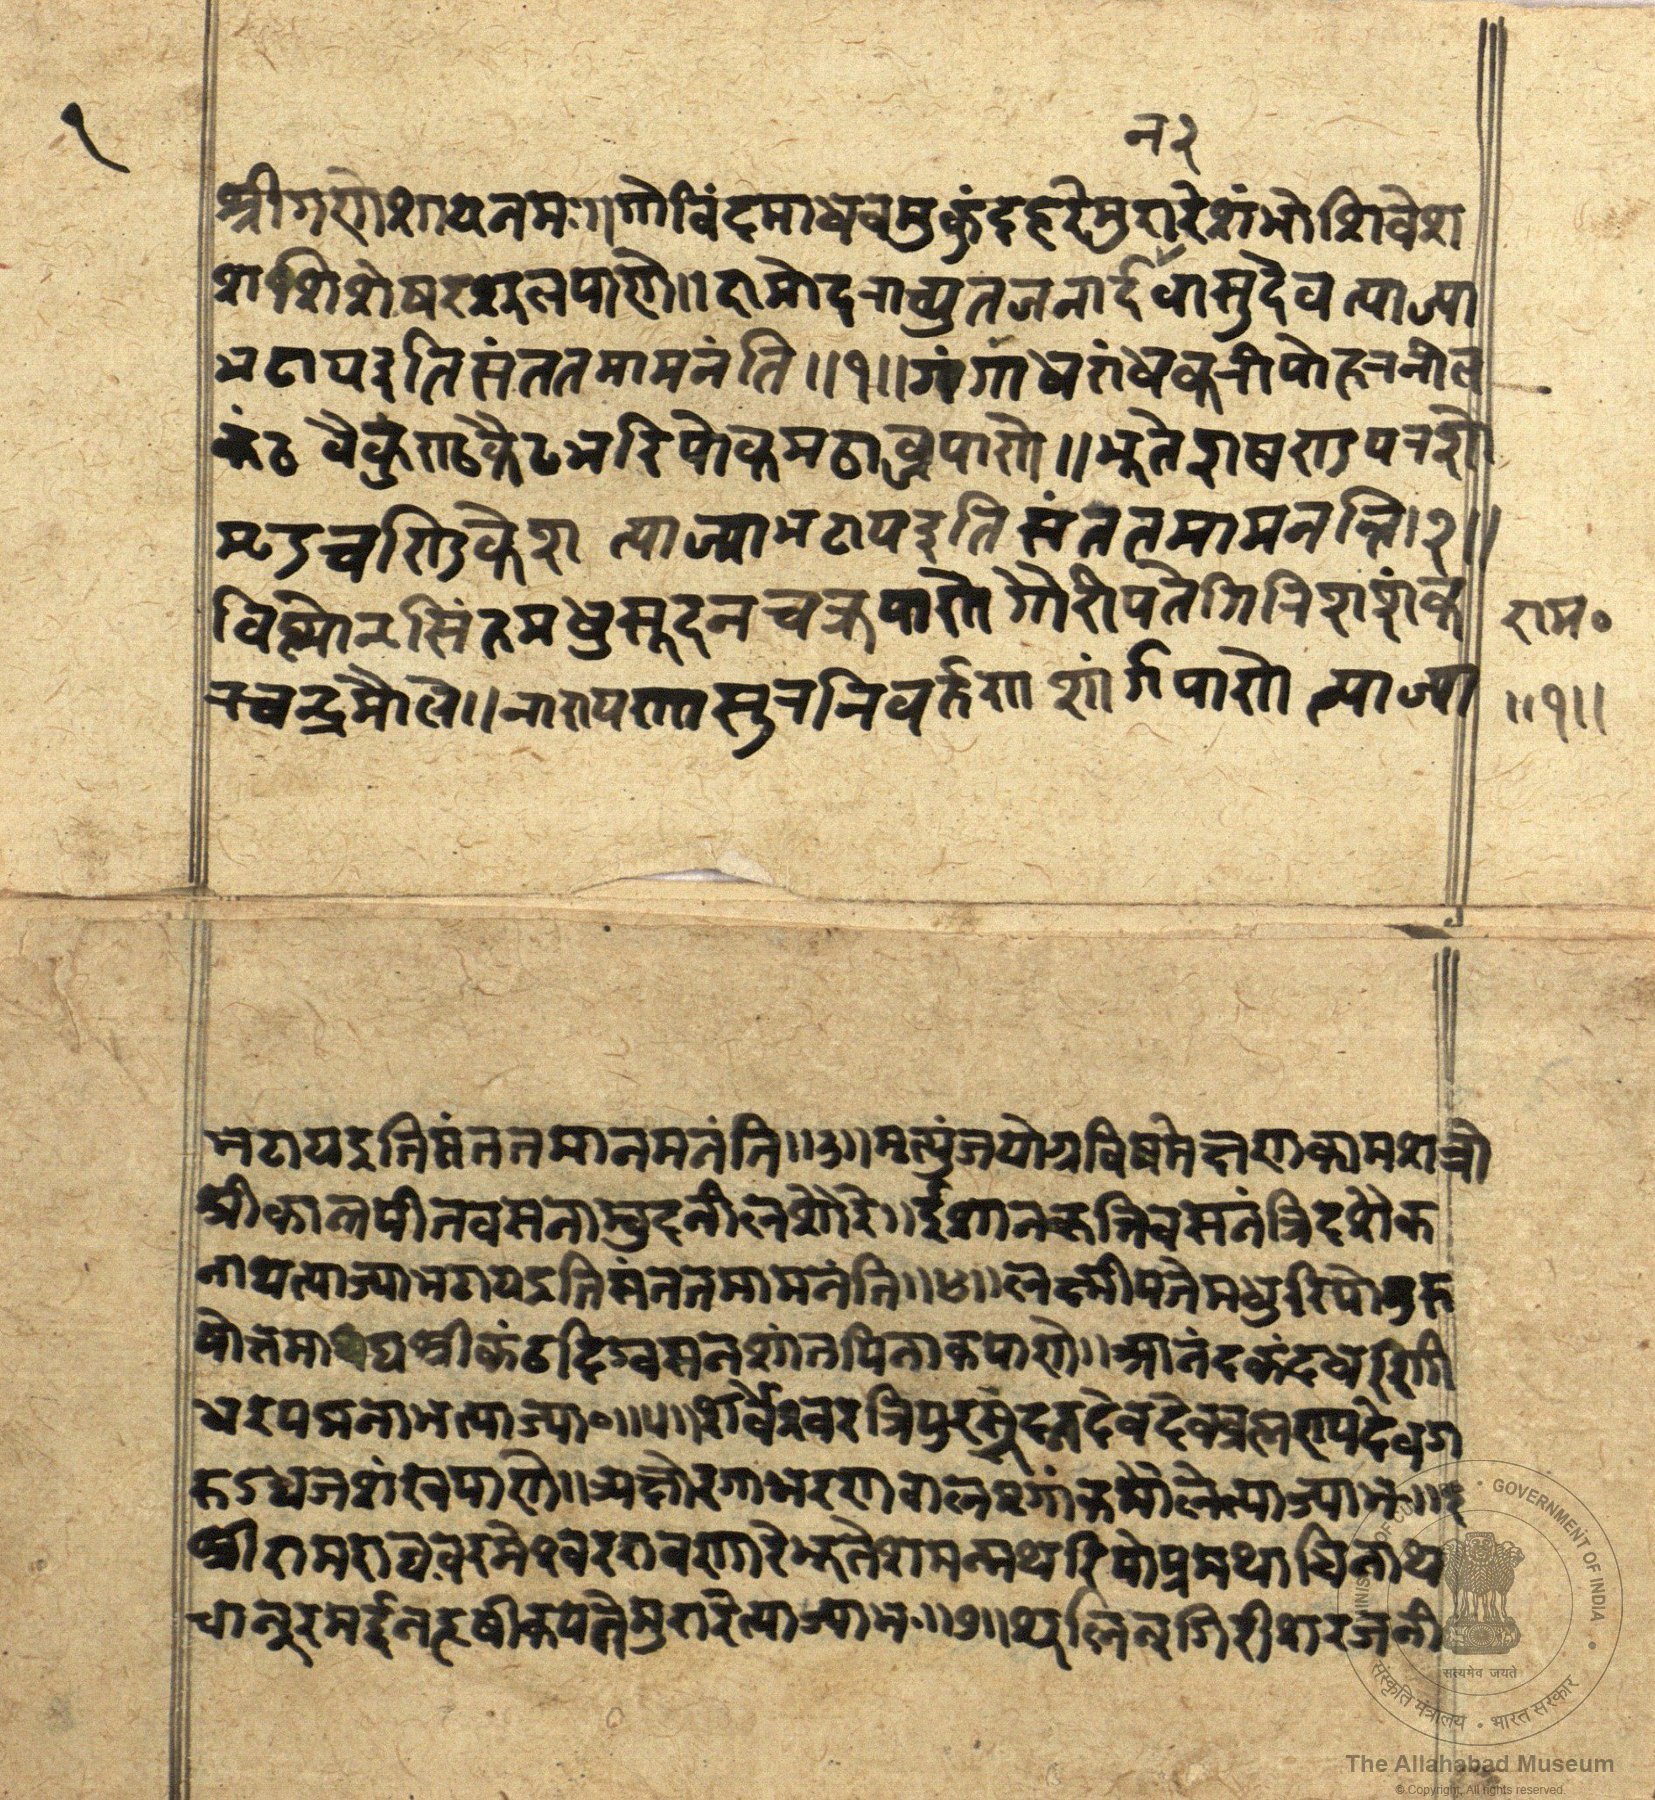 १
न २
श्रीगणेशायनमः।।गोविंदमाधवमुकुंदहरेमुरारेशंभोशिवेश
शशिशेषरशूलपाणे।।दामोदराच्युतजनार्दवासुदेवत्याज्या
भटायइतिसंततमामनंति।।१।।गंगाधरांधकरीपोहरनील
कंठवैकुंठकैटभरिपोकमठाब्जपाणे।।भूतेशषण्डपरशो
मृडचण्डिकेशत्याज्याभटायइतिसंततमामनन्ति।२।।
विष्णोनृसिंहमधुसूदनचक्रपाणेगौरीपतेगिरिशशंक
रचन्द्रमौले।।नारायणासुरनिवर्तणशांर्गपाणेत्याज्या
राम०
।।१।।
भटायइतिसंततमानमनंति।।३।।मृत्युंजयोग्रविषमेक्षणकामशत्रो
श्रीकालपीतवसनाम्बुदनीलशौरे।।ईशानकृत्तिवसनंत्रिदशैक
नाथत्याज्याभटायइतिसंततमामनंति।।४।।लक्ष्मीपतेमधुरिपोपुरु
षोत्तमाद्यश्रीकंठदिग्वसनशांतपिनाकपाणे।।आनंदकंदधरिणी
धरपद्मनाभत्याज्या०।।५।।शर्वेश्वरत्रिपुरसूदनदेवदेवब्रह्मण्यदेवग
रुडध्वजशंखपाणे।।त्र्यक्षोरगाभरणबालमृगांकमौलेत्याज्याभ०।।६
श्रीरामराघवरमेश्वररावणारेभूतेशमन्मथरिपोप्रमथाधिनाथ
चानूरमर्द्दनहृषीकपतेमुरारेत्याज्याभ०।।७।।शूलिन्गिरीशरजनी
GOVERNMENT OF INDIA
सत्यमेव जयते
संस्कृति मंत्रालय • भारत सरकार
The Allahabad Museum
© Copyright, All rights reserved.